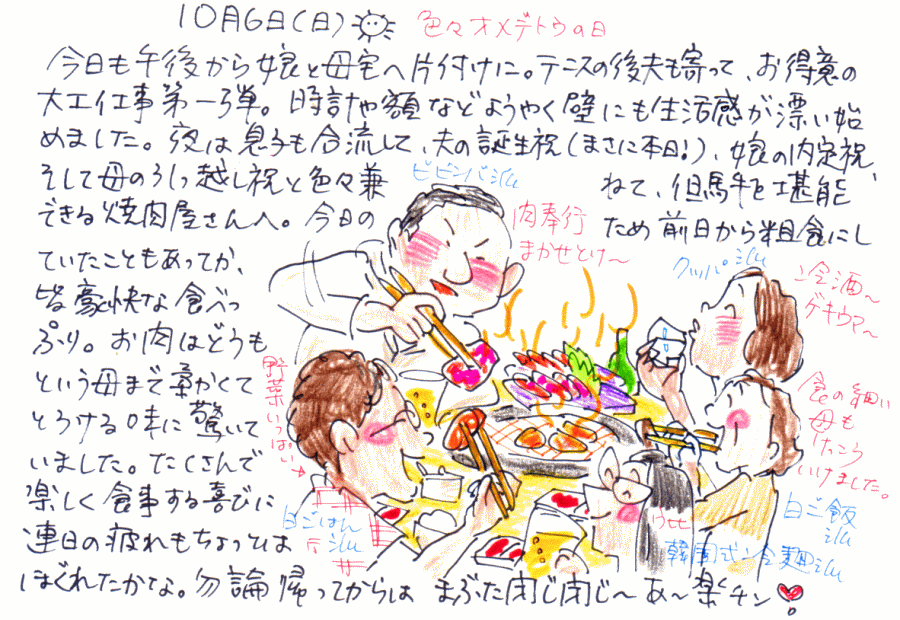 10月6日(日) 色々オメデトウの日
今日も午後から娘と母宅へ片付けに。テニスの後夫も寄って、お得意の
大工仕事第一弾。時計や額などようやく壁にも生活感が漂い始
めました。夜は息子も合流して、夫の誕生祝(まさに本日!)、娘の内定祝、
そして母の引っ越し祝と色々兼ねて、但馬牛を堪能
できる焼肉屋さんへ。今日のため前日から粗食にし
ていたこともあってか、
皆豪快な食べっ
ぷり。お肉はどうも
という母まで柔かくて
とろける味に驚いて
いました。たくさんで
楽しく食事する喜びに
連日の疲れもちょっぴりは
ほぐれたかな。勿論帰ってからは まぶた閉じ閉じ〜あ〜楽チン
ビビンバ
肉奉行
まかせとけ〜
クッパ
冷酒〜
ゲキウマ〜
食の細い
母も
けっこう
いけました。
野菜いっぱい
白ごはん
白ご飯
韓国式冷麺